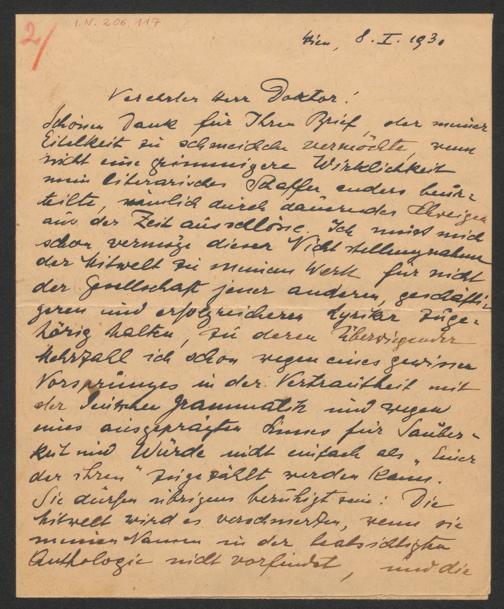 2/
I.N. 206.117
Wien, 8. I. 1930
Verehrter Herr Doktor!
Schönen Dank für Ihren Brief, der meiner
Eitelkeit zu schmeicheln vermöchte, wenn
nicht eine grimmigere Wirklichkeit
mein literarisches Schaffen anders beur-
teilte, nämlich durch dauerndes Schweigen
aus der Zeit ausschlösse. Ich muß mich
schon vermöge dieser Nichtstellungnahme
der Mitwelt zu meinem Werk für nicht
der Gesellschaft jener anderen, geschäfti-
geren und erfolgreicheren Lyriker zuge-
hörig halten, zu deren überwiegender
Mehrzahl ich schon wegen eines gewissen
Vorsprunges in der Vertrautheit mit
der deutschen Grammatik und wegen
eines ausgeprägten Sinnes für Sauber-
keit und Würde nicht einfach als „Einer
der ihren" zugezählt werden kann.
Sie dürfen übrigens beruhigt sein: Die
Mitwelt wird es verschmerzen, wenn sie
meinen Namen in der beabsichtigten
Anthologie nicht vorfindet, und die